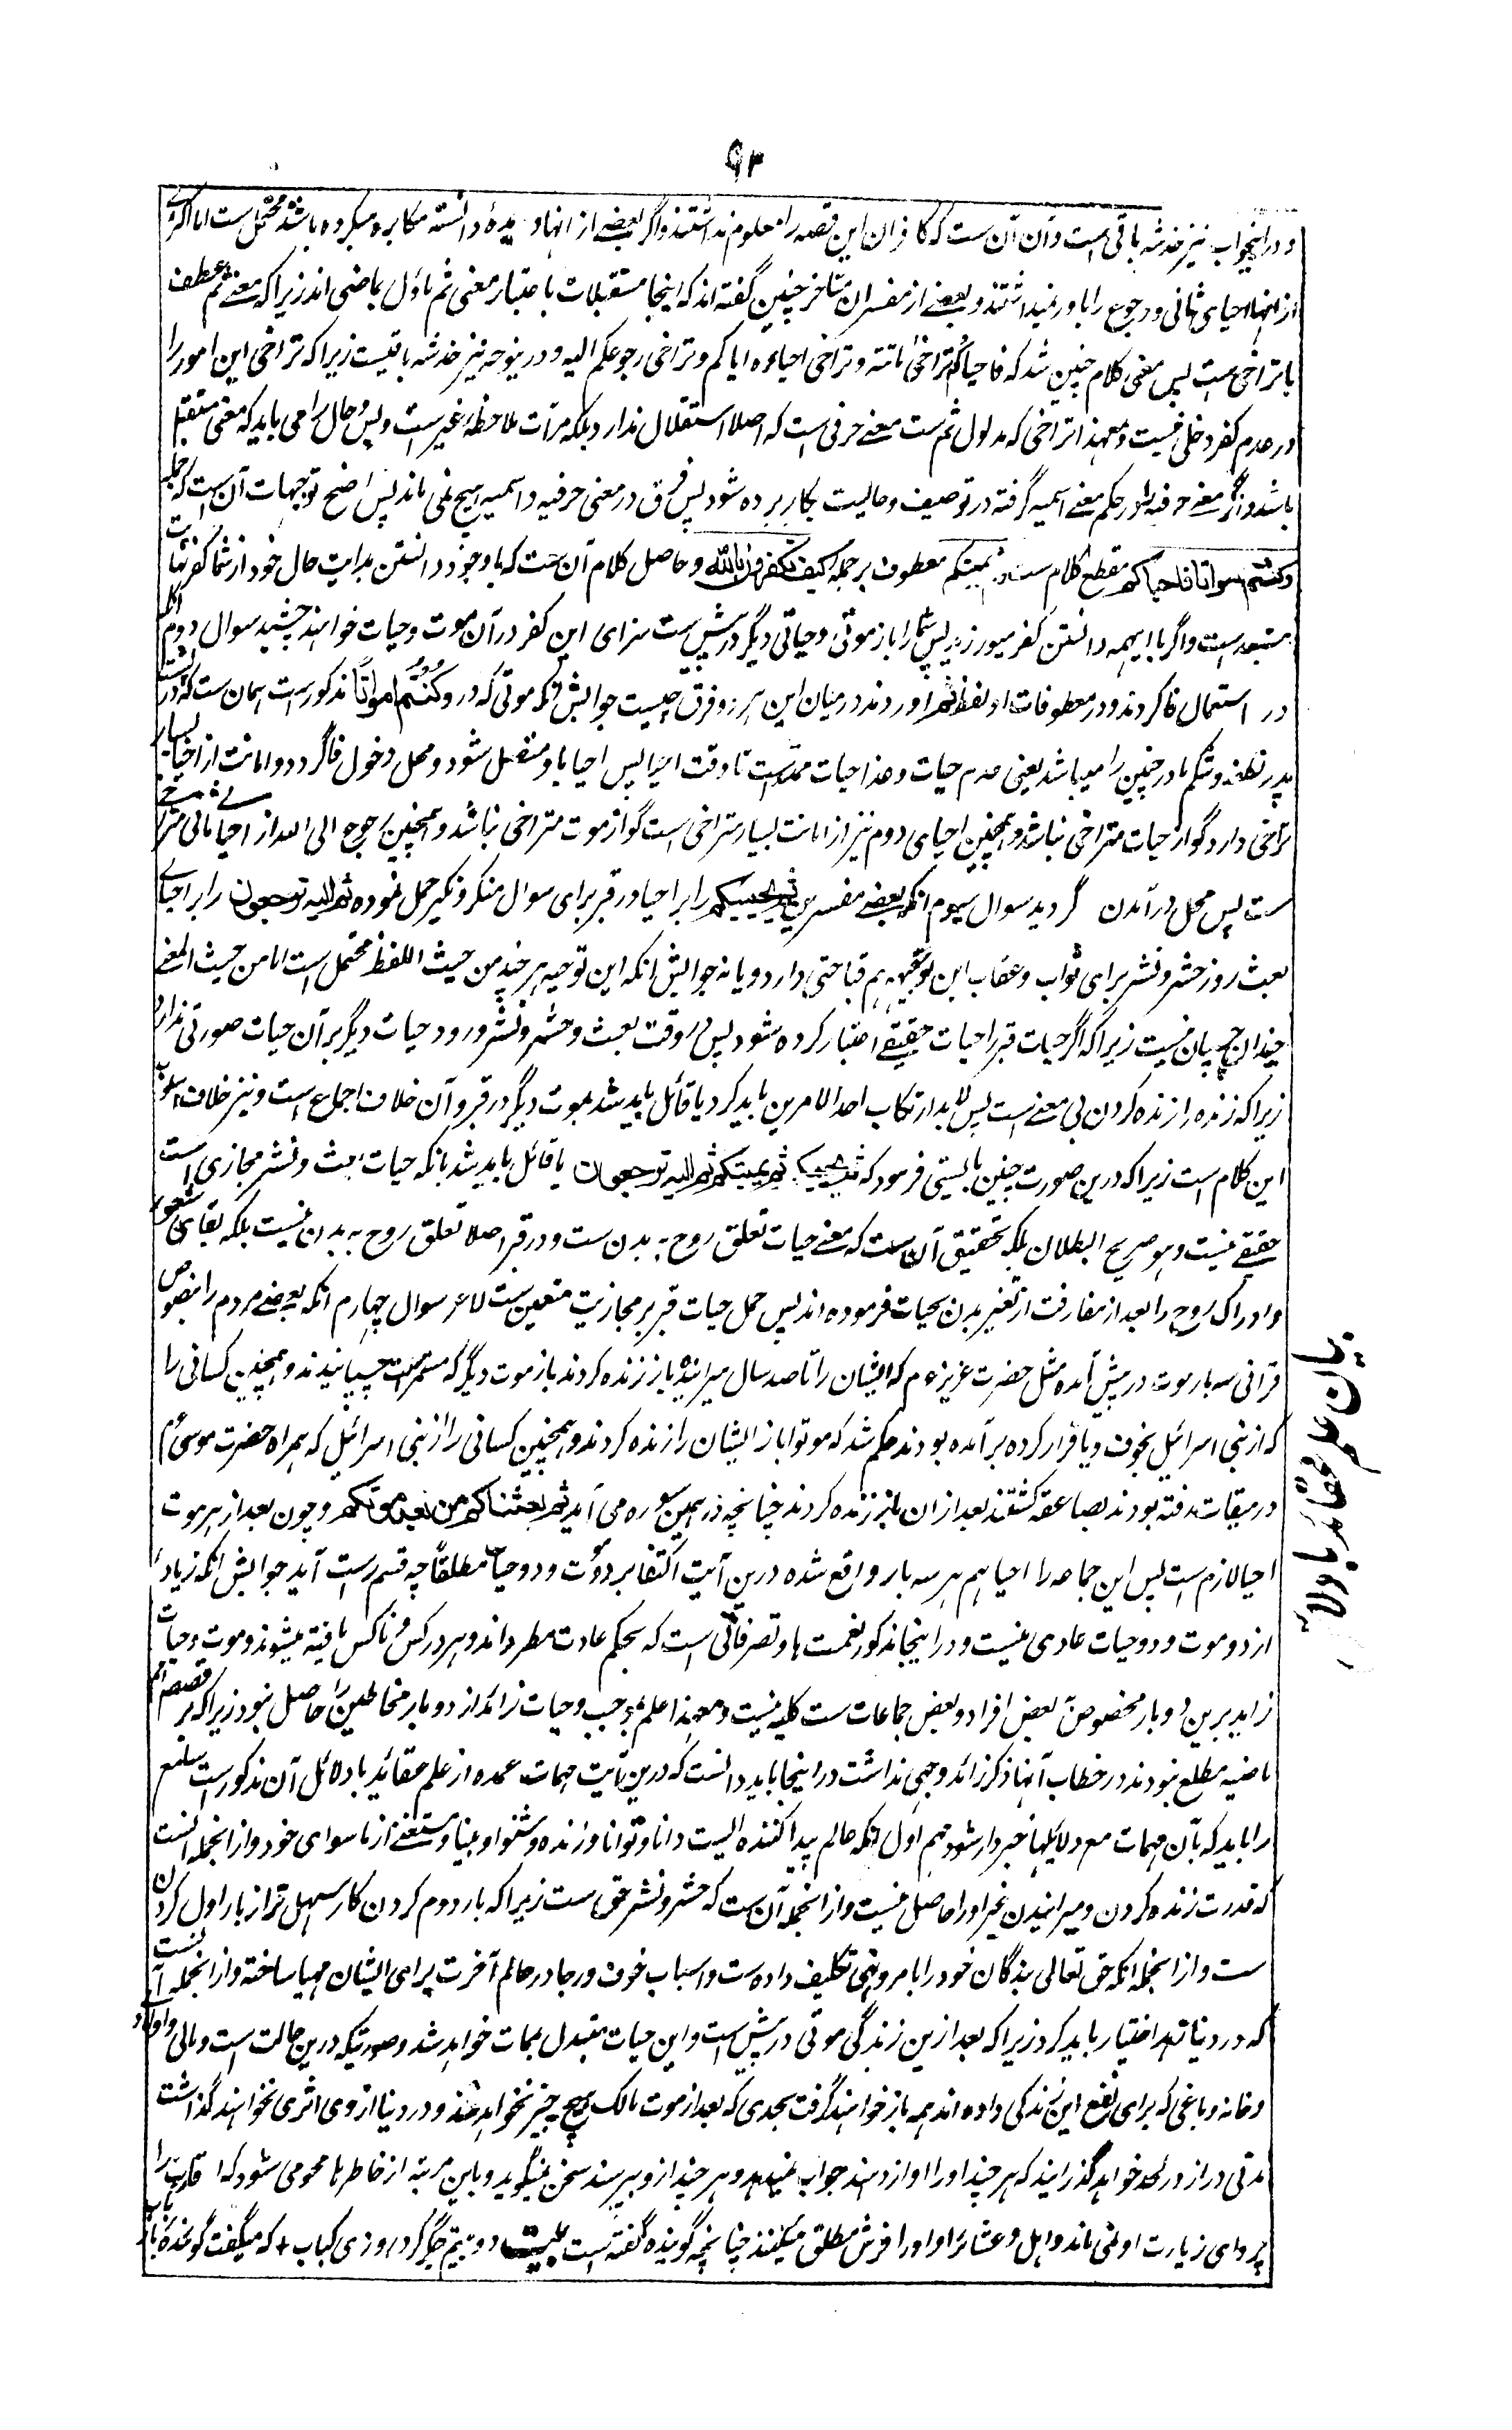 ۹۳
و درین جواب نیز خدشه باقی است و آن آن ست که کافران این قصه را معلوم نداشتند و اگر بعضے از انها دیده و دانسته مکابره میکرده باشند محتمل ست اما اکثرے
از انها احیای ثانی و رجوع را باور نمیداشتند و بعضے از مفسران متاخر چنین گفته اند که اینجا مستقبلات باعتبار معنی ثم ماؤل بماضی اند زیرا که معنے ثم عطف
با تراخی ست پس معنی کلام چنین شد که فاحیاکم و تراخی اماتته و تراخی احیاءه ایاکم و تراخی رجوعکم الیه و درینوجه نیز خدشه باقیست زیرا که تراخی این امور را
در عدم کفر دخلی نیست و معهذا تراخی که مدلول ثم ست معنے حرفی است که اصلا استقلال ندارد بلکه مرآت ملاحظه غیر است و پس و حال را می باید که معنی مستقل
باشد و اگر معنے حرفیه را در حکم معنے اسمیه گرفته در توصیف و حالیت بکار برده شود پس فرق در معنی حرفیه و اسمیه هیچ نمی ماند پس اضح توجیهات آن ست که جمله
وکنتم امواتا فاحیاکم مقطع کلام ست و ثم یمیتکم معطوف بر جمله کیف تکفرون بالله و حاصل کلام آن ست که با وجود دانستن بدایت حال خود از شما کفر بغایت
مستبعد ست و اگر با اینهمه دانستن کفر میورزید پس شما را باز موتی و حیاتی دیگر در پیش ست سزای این کفر در آن موت و حیات خواهند چشید سوال دوم آنکه
در استعمال فا کردند و در معطوفات او لفظ ثم آوردند در میان این هر دو فرق چیست جوابش آنکه موتی که در وکنتم امواتا مذکور ست همان ست که در پشت
پدر نطفه و شکم مادر جنین را میباشد یعنی عدم حیات و هذا حیات ممتد ست تا وقت احیا پس احیا باو متصل شود و محل دخول فا گردد و اماتت از احیا بسیار
تراخی دارد گو از حیات متراخی نباشد و همچنین احیای دوم نیز از اماتت بسیار متراخی است گو از موت متراخی نباشد و همچنین رجوع الی الله از احیا ثانی متراخی
ست پس محل درآمدن ثم گردید سوال سیوم آنکه بعضے مفسرین ثم یحییکم را بر احیا در قبر برای سوال منکر و نکیر حمل نموده ثم الیه ترجعون را بر احیای
بعث روز حشر و نشر برای ثواب و عقاب این توجیه هم قباحتی دارد یا نه جوابش آنکه این توجیه هر چند من حیث اللفظ محتمل است اما من حیث المعنے
چندان چسپان نیست زیرا که اگر حیات قبر را حیات حقیقے اعتبار کرده شود پس در وقت بعث و حشر و نشر ورود حیات دیگر بر آن حیات صورتی ندارد
زیرا که زنده را زنده کردن بی معنے است پس لابد ارتکاب احد الامرین باید کرد یا قائل باید شد بموت دیگر در قبر و آن خلاف اجماع است و نیز خلاف اسلوب
این کلام است زیرا که درین صورت چنین بایستی فرمود که ثم یحییکم ثم یمیتکم ثم الیه ترجعون یا قائل باید شد بآنکه حیات بعث و نشر مجازی است
حقیقے نیست و هو صریح البطلان بلکه تحقیق آن ست که معنے حیات تعلق روح به بدن ست و در قبر اصلا تعلق روح به بدن نیست بلکه بقای شعور
و ادراک روح را بعد از مفارقت از تغیر بدن بحیات فرموده اند پس حمل حیات قبر بر مجازیت متعین ست لا غیر سوال چهارم آنکه بعضے مردم را بنصوص
قرآنی سه بار موت در پیش آمده مثل حضرت عزیر ع م که ایشان را تا صد سال میرانیده باز زنده کردند باز موت دیگر که مستمر ست چسپانیدند و همچنین کسانی را
که از بنی اسرائیل بخوف وبا فرار کرده برآمده بودند حکم شد که موتوا باز ایشان را زنده کردند و همچنین کسانی را از بنی اسرائیل که همراه حضرت موسی ع م
در میقات رفته بودند بصاعقه کشتند بعد از ان باز زنده کردند چنانچه در همین سوره می آید ثم بعثناکم من بعد موتکم و چون بعد از هر موت
احیا لازم است پس این جماعه را احیا هم هر سه بار واقع شده درین آیت اکتفا بر دو موت و دو حیات مطلقاً چه قسم راست آید جوابش آنکه زیاده
از دو موت و دو حیات عادی نیست و در اینجا مذکور نعمت ها و تصرفاتی است که بحکم عادت مطرد اند و در هر کس و ناکس یافته میشوند و موت و حیات
زاید برین دو بار مخصوص بعض افراد و بعض جماعات ست کلیه نیست و معهذا علم بموجب و حیات زائد از دو بار مخاطبین را حاصل نبود زیرا که بر قصص امم
ماضیه مطلع نبودند در خطاب آنها ذکر زائد وجهی نداشت در اینجا باید دانست که درین آیت مهمات عمده از علم عقائد با دلائل آن مذکور است سامع
را باید که بآن مهمات مع دلائلها خبردار شود مهم اول آنکه عالم را پیدا کننده ایست دانا و توانا و زنده و شنوا و بینا و مستغنے از ما سوای خود و از انجمله آنست
که قدرت زنده کردن و میرانیدن غیر او را حاصل نیست و از انجمله آن ست که حشر و نشر حق ست زیرا که بار دوم کردن کار سهل تر از بار اول کردن
ست و از انجمله آنکه حق تعالی بندگان خود را بامر و نهی تکلیف داده ست و اسباب خوف و رجا در عالم آخرت برای ایشان مهیا ساخته و از انجمله آنست
که در دنیا زهد اختیار باید کرد زیرا که بعد ازین زندگی موتی در پیش است و این حیات متبدل بممات خواهد شد و صورتیکه درین حالت است و مالی و اولاد
و خانه و باغی که برای نفع این زندگی داده اند همه باز خواهند گرفت بحدی که بعد از موت مالک هیچ چیز نخواهد ماند و در دنیا از وی اثری نخواهند گذاشت
مدتی دراز در لحد خواهد گذرانید که هر چند او را آواز دهند جواب نمیدهد و هر چند ازو بپرسند سخن نمیگوید و باین مرتبه از خاطرها محو می شود که اقارب را
پروای زیارت او نمی ماند و اهل و عشائر او را فراموش مطلق میکنند چنانچه گوینده گفته است بیت دو بیتم جگر کرد روزی کباب + که میگفت گوینده با رباب
بیان علم عقائد با دلائل